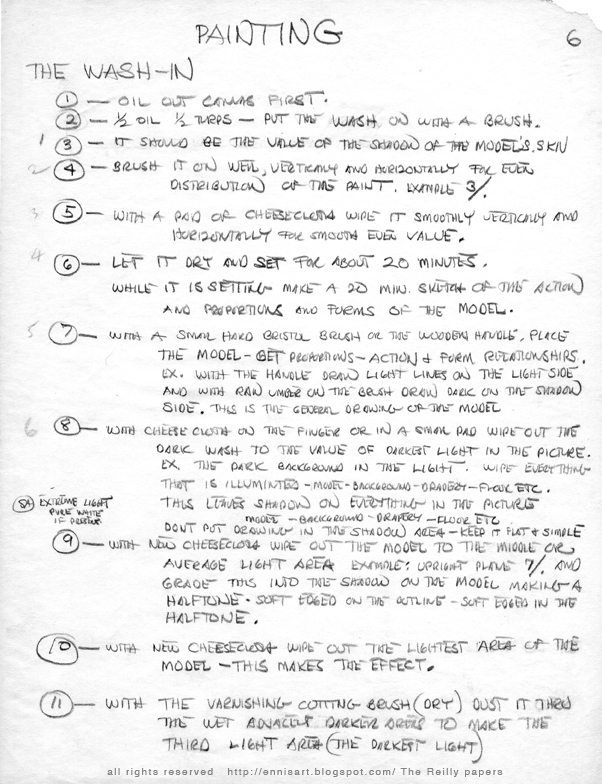 PAINTING
6
THE WASH-IN
1 — OIL OUT CANVAS FIRST.
2 — ½ OIL ½ TURPS — PUT THE WASH ON WITH A BRUSH.
1 3 — IT SHOULD BE THE VALUE OF THE SHADOW OF THE MODEL'S SKIN
2 4 — BRUSH IT ON WELL, VERTICALLY AND HORIZONTALLY FOR EVEN
DISTRIBUTION OF THE PAINT. EXAMPLE 3/.
3 5 — WITH A PAD OF CHEESECLOTH WIPE IT SMOOTHLY VERTICALLY AND
HORIZONTALLY FOR SMOOTH EVEN VALUE.
4 6 — LET IT DRY AND SET FOR ABOUT 20 MINUTES.
WHILE IT IS SETTING MAKE A 20 MIN. SKETCH OF THE ACTION
AND PROPORTIONS AND FORMS OF THE MODEL.
5 7 — WITH A SMALL HARD BRISTLE BRUSH OR THE WOODEN HANDLE, PLACE
THE MODEL — GET PROPORTIONS — ACTION & FORM RELATIONSHIPS.
EX. WITH THE HANDLE DRAW LIGHT LINES ON THE LIGHT SIDE
AND WITH RAW UMBER ON THE BRUSH DRAW DARK ON THE SHADOW
SIDE. THIS IS THE GENERAL DRAWING OF THE MODEL
6 8 — WITH CHEESE CLOTH ON THE FINGER OR IN A SMALL PAD WIPE OUT THE
DARK WASH TO THE VALUE OF DARKEST LIGHT IN THE PICTURE.
EX. THE DARK BACKGROUND IN THE LIGHT. WIPE EVERYTHING
THAT IS ILLUMINTED — MODEL — BACKGROUND — DRAPERY — FLOOR ETC.
THIS LEAVES SHADOW ON EVERYTHING IN THE PICTURE
MODEL — BACKGROUND — DRAPERY — FLOOR ETC
DONT PUT DRAWING IN THE SHADOW AREA — KEEP IT FLAT & SIMPLE
8A EXTREME LIGHT
PURE WHITE
IF PRESENT
9 — WITH NEW CHEESECLOTH WIPE OUT THE MODEL TO THE MIDDLE OR
AVERAGE LIGHT AREA EXAMPLE: UPRIGHT PLANE 7/. AND
GRADE THIS INTO THE SHADOW ON THE MODEL MAKING A
HALFTONE. SOFT EDGED ON THE OUTLINE — SOFT EDGED IN THE
HALFTONE.
10 — WITH NEW CHEESECLOTH WIPE OUT THE LIGHTEST AREA OF THE
MODEL — THIS MAKES THE EFFECT.
11 — WITH THE VARNISHING COTTING BRUSH (DRY) DUST IT THRU
THE WET DARKER AREAS TO MAKE THE
THIRD LIGHT AREA (THE DARKEST LIGHT)
all rights reserved http://ennisart.blogspot.com/ The Reilly papers